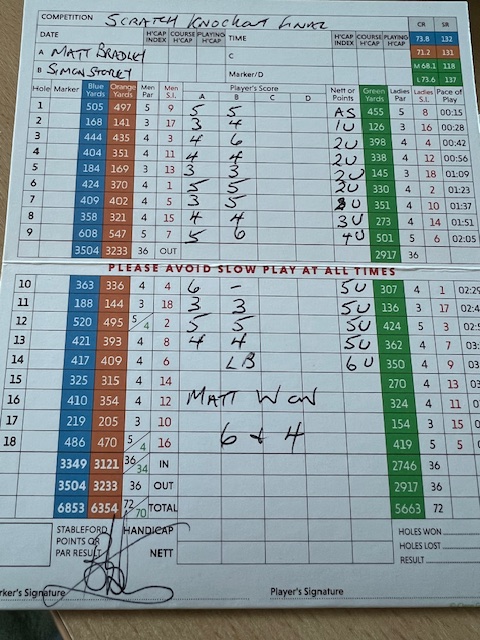 COMPETITION SCRATCH KNOCKOUT FINAL CR SR
DATE H'CAP INDEX COURSE H'CAP PLAYING H'CAP TIME H'CAP INDEX COURSE H'CAP PLAYING H'CAP 73.8 132
A MATT BRADLEY C 71.2 131
M 68.1 118
B SIMON STOREY Marker/D L 73.6 137
Hole Marker Blue Yards Orange Yards Men Par Men S.I. Player's Score A B C D Nett or Points Green Yards Ladies Par Ladies S.I. Pace of Play
1 505 497 5 9 5 5 AS 455 5 8 00:15
2 168 141 3 17 3 4 1U 126 3 16 00:28
3 444 435 4 3 4 6 2U 398 4 4 00:42
4 404 351 4 11 4 4 2U 338 4 12 00:56
5 184 169 3 13 3 3 2U 145 3 18 01:09
6 424 370 4 1 5 5 2U 330 4 2 01:23
7 409 402 4 5 3 5 3U 351 4 10 01:37
8 358 321 4 15 4 4 3U 273 4 14 01:51
9 608 547 5 7 5 6 4U 501 5 6 02:05
3504 3233 36 OUT 2917 36
PLEASE AVOID SLOW PLAY AT ALL TIMES
10 363 336 4 4 6 - 5U 307 4 1 02:
11 188 144 3 18 3 3 5U 136 3 17 02:
12 520 495 5/4 2 5 5 5U 424 5 3 02:
13 421 393 4 8 4 4 5U 362 4 7 03:
14 417 409 4 6 LB 6U 350 4 9 03
15 325 315 4 14 270 4 13 03
16 410 354 4 12 MATT WON 324 4 11 0
17 219 205 3 10 154 3 15 0
18 486 470 5/4 16 6 + 4 419 5 5
3349 3121 36/34 IN 2746 36
3504 3233 36 OUT 2917 36
6853 6354 72/70 TOTAL 5663 72
STABLEFORD POINTS OR PAR RESULT HANDICAP HOLES WON
NETT HOLES LOST
RESULT
rker's Signature Player's Signature